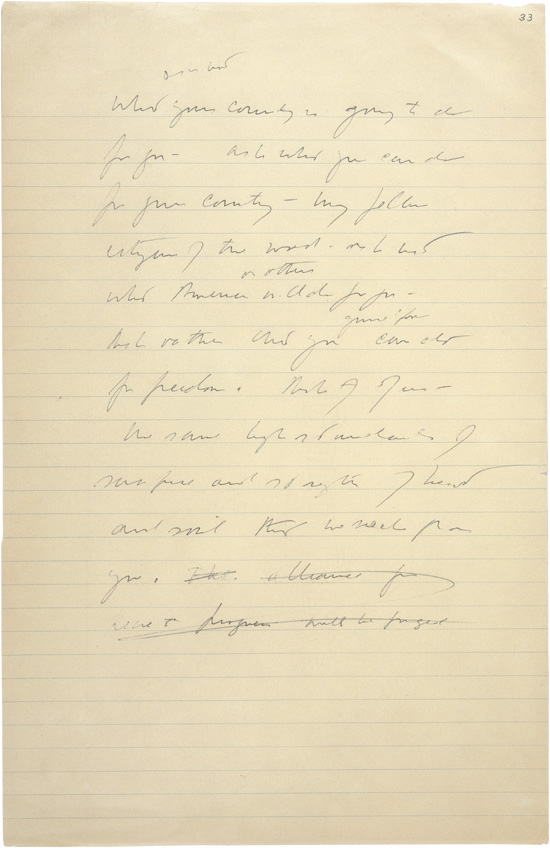 33
ask not
what your country is going to do
for you - ask what you can do
for your country - my fellow
citizens of the world - ask not
or others
what America will do for you -
Ask rather what you can do
for freedom. Ask of us -
the same high standards of
sacrifice and strength of heart
and will that we seek from
you. The alliance for
progress will be forged